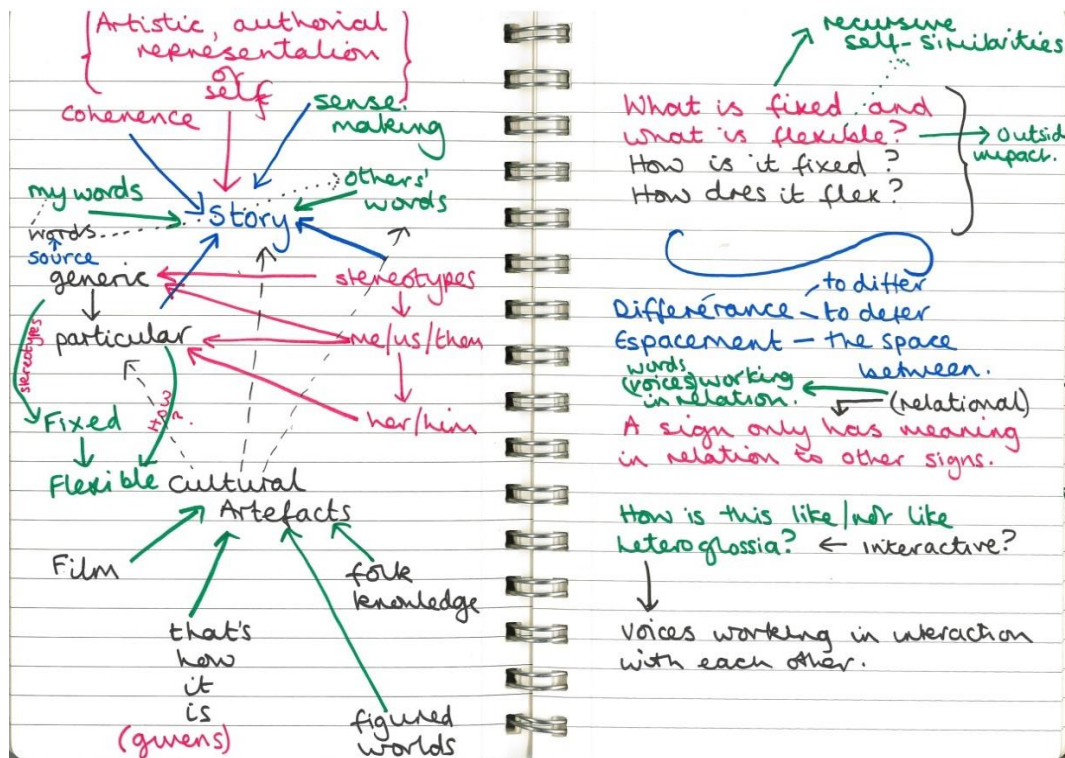 Artistic, authorial
representation
of
self
coherence
sense.
making
my words
others'
words
Story
words
source
generic
stereotypes
particular
me/us/them
stereotypes
HOW
?
Fixed
her/him
Flexible
Cultural
Artefacts
Film
folk
knowledge
that's
how
it
is
(givens)
figured
worlds
recursive
self-similarities
What is fixed and
what is flexible?
outside
impact.
How is it fixed?
How does it flex?
Differérance
to differ
to defer
Espacement – the space
between.
words
(voices) working
in relation.
(relational)
A sign only has meaning
in relation to other signs.
How is this like/not like
heteroglossia? ← interactive?
voices working in interaction
with each other.